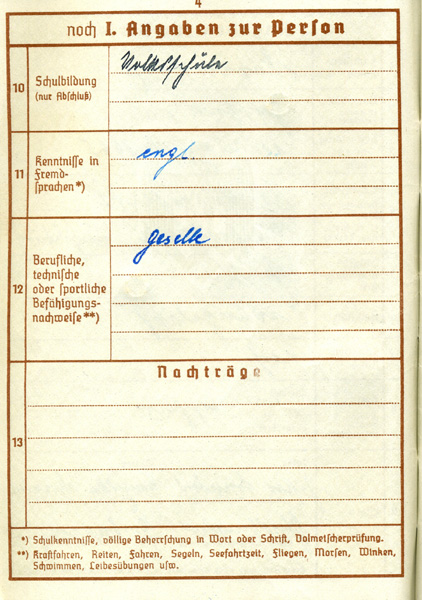 4
noch I. Angaben zur Person
10
Schulbildung
(nur Abschluß)
Volksschule
11
Kenntnisse in
Fremd-
sprachen*)
engl.
12
Berufliche,
technische
oder sportliche
Befähigungs-
nachweise**)
Geselle
Nachträge
13
*) Schulkenntnisse, völlige Beherrschung in Wort oder Schrift, Dolmetscherprüfung.
**) Kraftfahren, Reiten, Fahren, Segeln, Seefahrtzeit, Fliegen, Morsen, Winken,
Schwimmen, Leibesübungen usw.